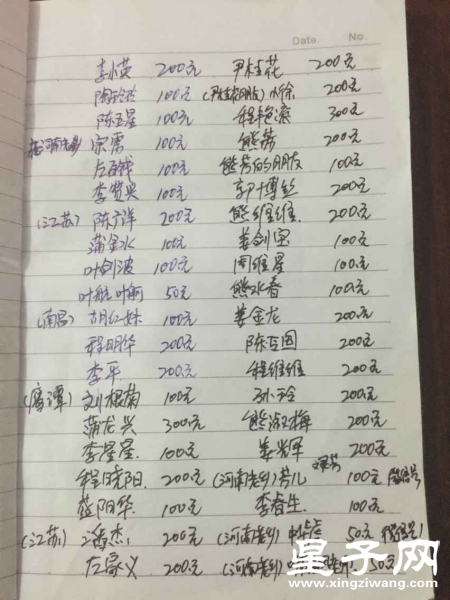 Date. No.
李小英 200元 尹桂花 200元
陶 100元 小徐 200元
陈五星 100元 程艳 300元
宗 100元 熊芳 200元
左百钱 100元 熊芳的朋友 100元
李贤典 100元 郭博 200元
(江苏) 陈广洋 200元 熊维维 200元
蒲金水 100元 姜剑宝 100元
叶剑波 100元 周维星 100元
叶航 叶 50元 熊水香 100元
(南昌) 胡红妹 100元 姜金龙 200元
程明华 200元 陈 200元
李平 200元 程维维 200元
(鹰潭) 刘根菊 100元 孙玲 200元
蒲龙兴 300元 熊淑梅 200元
李星星 100元 姜光军 200元
程晓阳 200元 (河南老乡) 芳儿 100元
蓝阳华 100元 李春生 100元
(江苏) 潘杰 200元 (河南老乡) 50元
左家义 200元 (河南老乡) 50元
星子网
www.xingziwang.com